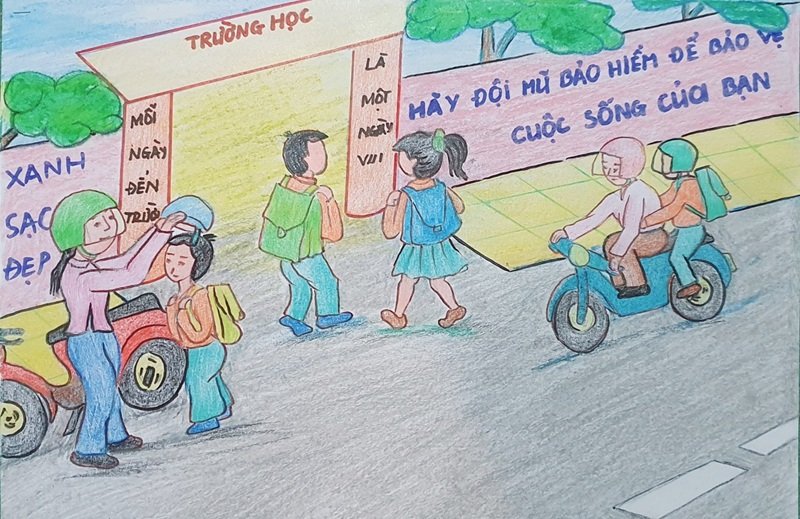 TRƯỜNG HỌC
MỖI
NGÀY
ĐẾN
TRƯỜ
LÀ
MỘT
NGÀY
VUI
HÃY ĐỘI MŨ BẢO HIỂM ĐỂ BẢO VỆ
CUỘC SỐNG CỦA BẠN
XANH
SẠC
ĐẸP